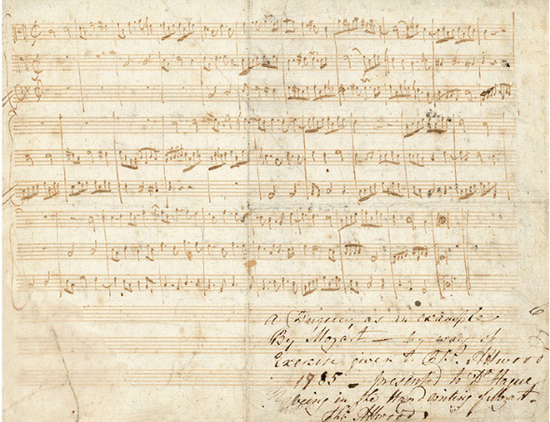 a Fugue, as an example
By Mozart — by way of
Exercise given to Attwood
1785 — presented to Dr Hague
being in the Hand writing of Mozart.
Thos Attwood.